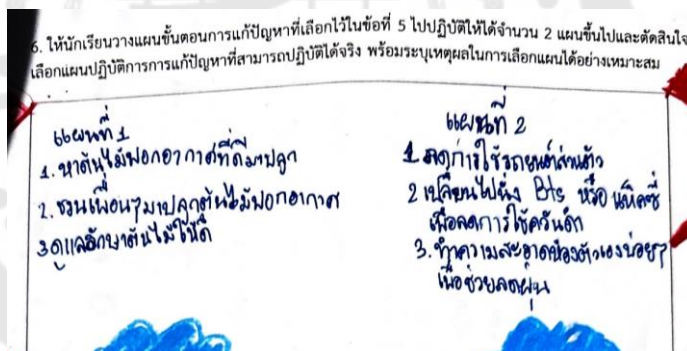 6. ให้นักเรียนวางแผนขั้นตอนการแก้ปัญหาที่เลือกไว้ในข้อที่ 5 ไปปฏิบัติให้ได้จำนวน 2 แผนขึ้นไปและตัดสินใจ
เลือกแผนปฏิบัติการการแก้ปัญหาที่สามารถปฏิบัติได้จริง พร้อมระบุเหตุผลในการเลือกแผนได้อย่างเหมาะสม
แผนที่ 1
1. หาต้นไม้ฟอกอากาศที่ดีมาปลูก
2. ชวนเพื่อนๆมาปลูกต้นไม้ฟอกอากาศ
3 ดูแลรักษาต้นไม้ให้ดี
แผนที่ 2
1. ลดการใช้รถยนต์ส่วนตัว
2 เปลี่ยนไปนั่ง Bts หรือ แท็คซี่
เพื่อลดการใช้ควันดำ
3. ทำความสะอาดห้องตัวเองบ่อยๆ
เพื่อช่วยลดฝุ่น